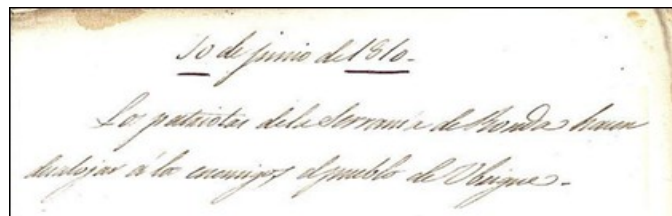 10 de junio de 1810.
Los patriotas de la Serranía de Ronda hacen
desalojar á los enemigos el pueblo de Ubrique.